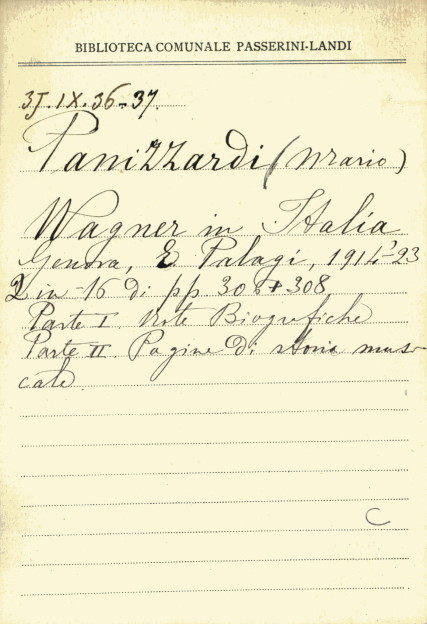 BIBLIOTECA COMUNALE PASSERINI-LANDI
3J.IX.36-37.
Panizzardi (Mario)
Wagner in Italia
Genova, E. Palagi, 1914-23
2 in-16 di pp. 306 + 308
Parte I. Note Biografiche
Parte II. Pagine di storia musi-
cale
C